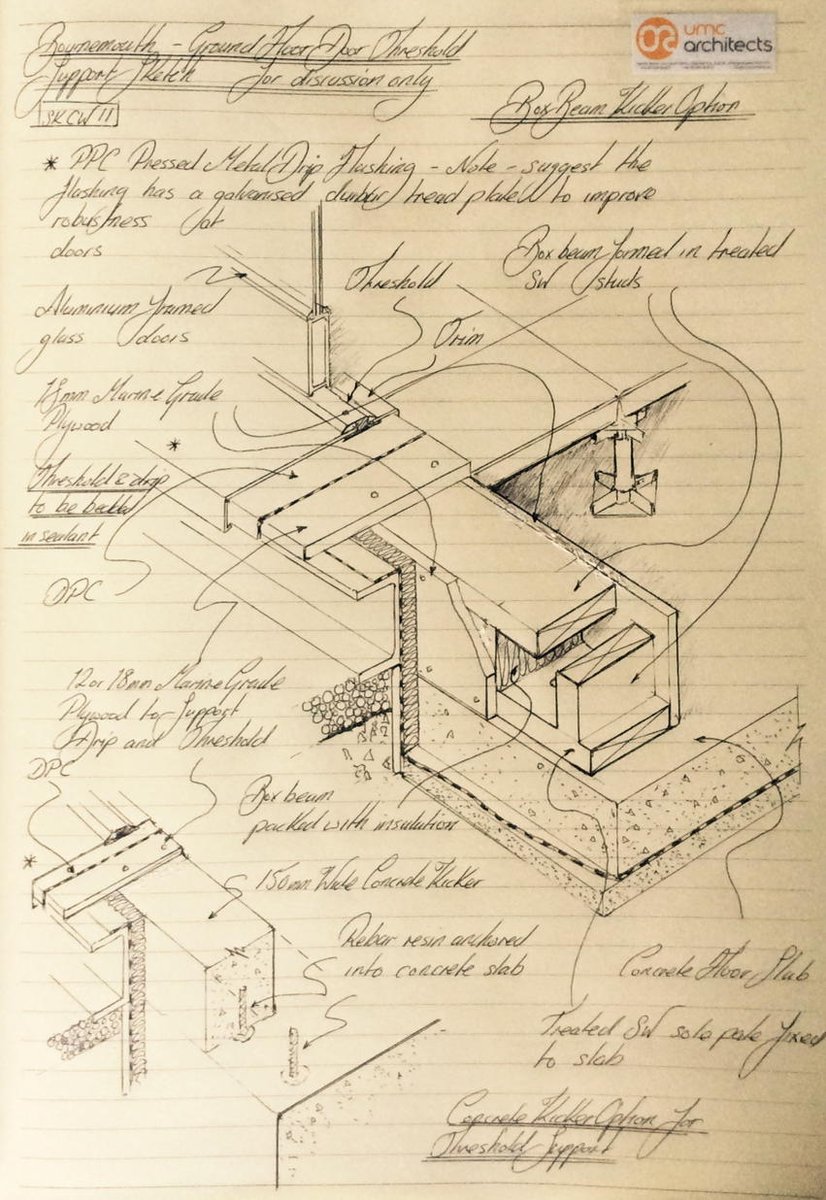 Bournemouth - Ground Floor Door Threshold
Support Sketch for discussion only
SKCW11
umc
architects
Box Beam Kicker Option
* PPC Pressed Metal Drip Flashing - Note - suggest the
flashing has a galvanised durbar tread plate to improve
robustness at
doors
Threshold
Box beam formed in treated
SW studs
Aluminium framed
glass doors
Trim
18mm Marine Grade
Plywood
*
Threshold & drip
to be bedded
in sealant
DPC
12 or 18mm Marine Grade
Plywood to Support
Drip and Threshold
DPC
Box beam
packed with insulation
*
150mm Wide Concrete Kicker
Rebar resin anchored
into concrete slab
Concrete Floor Slab
Treated SW sole plate fixed
to slab
Concrete Kicker Option for
Threshold Support